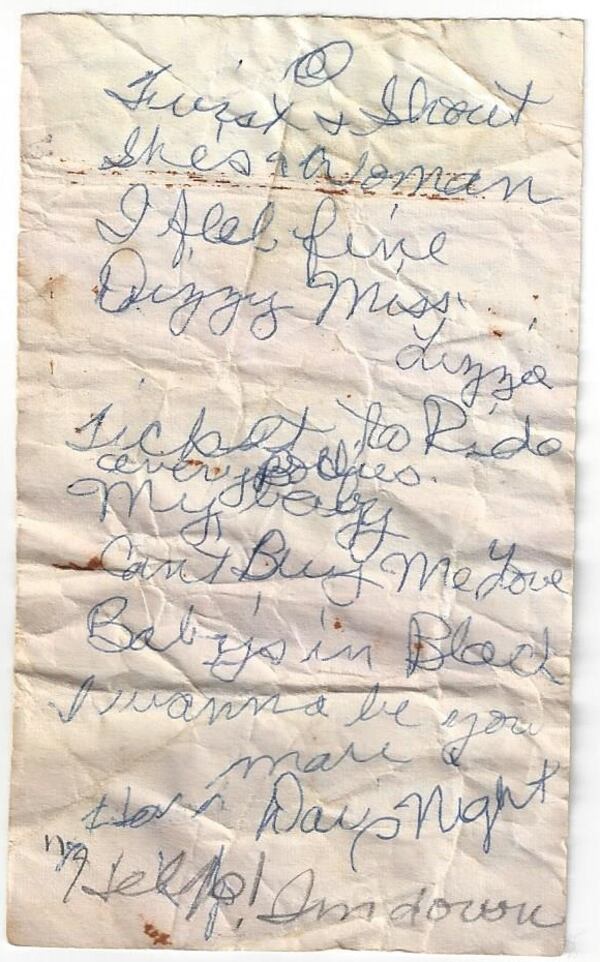 Twist & Shout
She's a Woman
I feel fine
Dizzy Miss
Lizzie
Ticket to Ride
everybodies.
My baby
Can't Buy Me Love
Baby's in Black
I wanna be you
man
Hard Days Night
Help! Im down